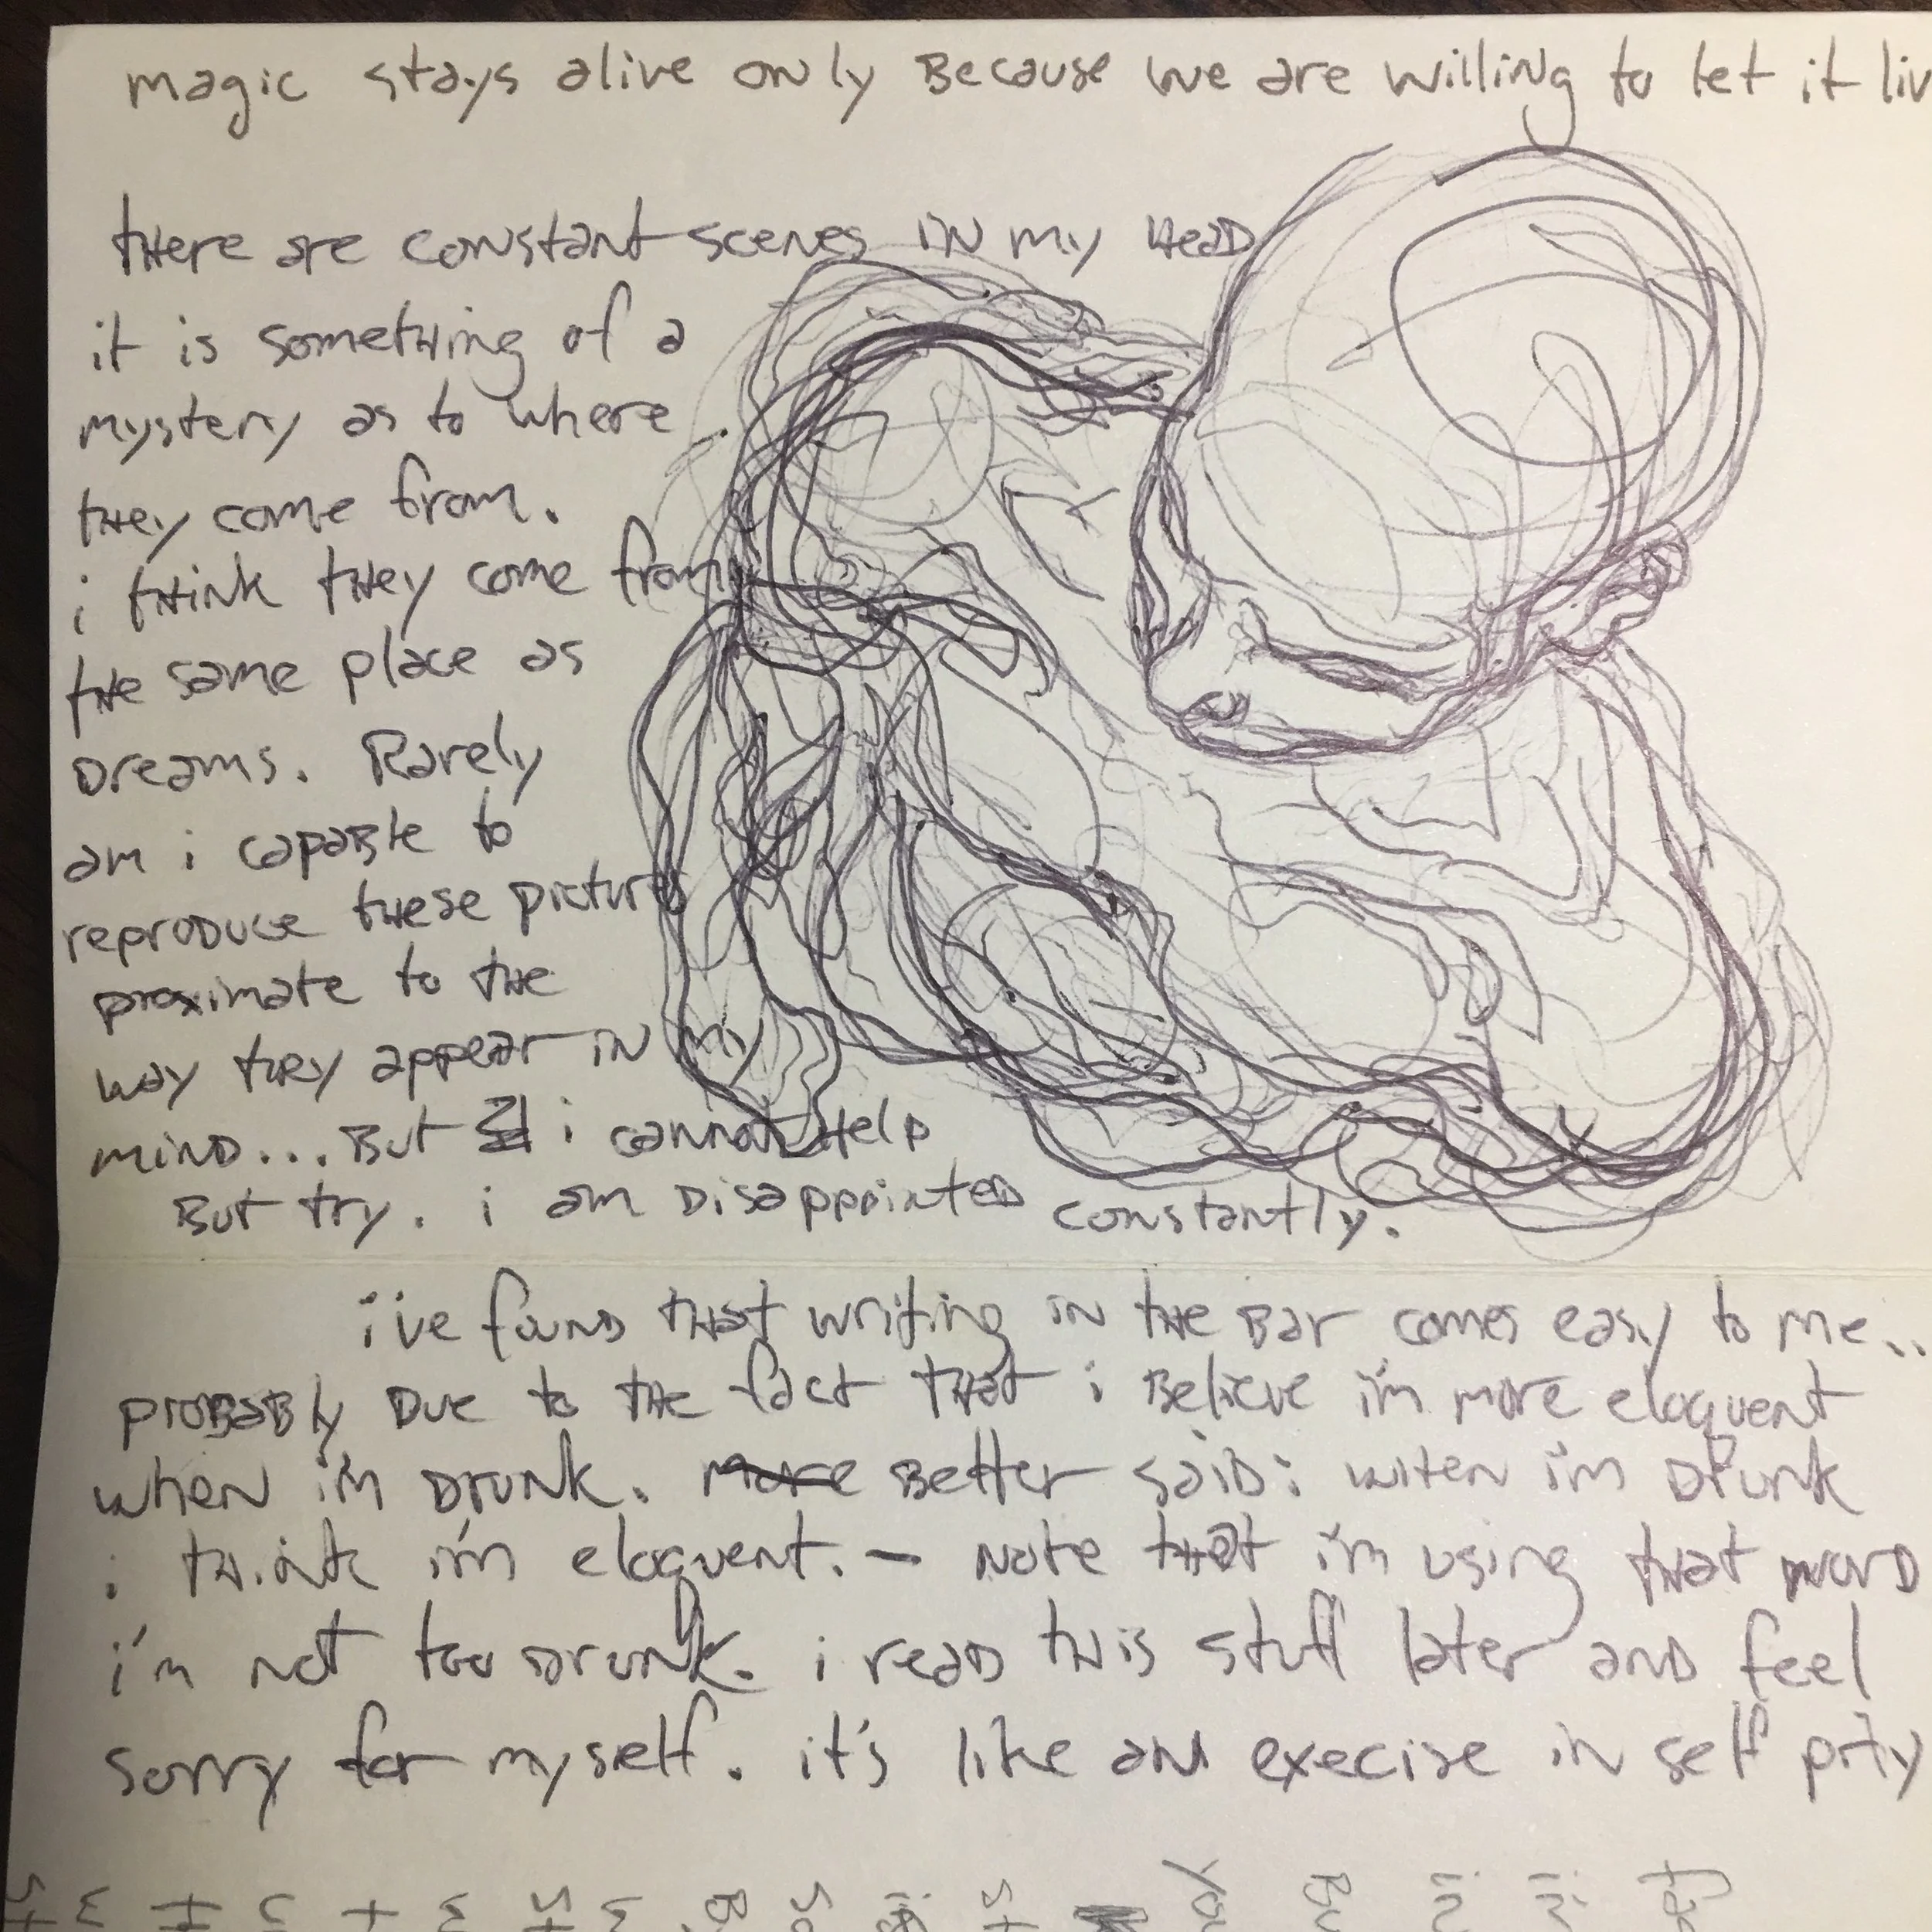 magic stays alive only Because we are willing to let it liv
tHere are constant scenes in my HeaD
it is sometHing of a
mystery as to where
tHey come from.
i tHink tHey come from
tHe same place as
Dreams. Rarely
am i capaBle to
reproDuce tHese pictures
proximate to tHe
way tHey appear in my
minD... But i cannot Help
But try. i am DisappointeD constantly.
i've founD tHat writing in tHe Bar comes easy to me..
proBaBly Due to tHe fact tHat i Believe i'm more eloquent
when i'm Drunk. more Better saiD: wHen i'm Drunk
i tHink i'm eloquent. - Note tHat i'm using tHat worD
i'm not too Drunk. i reaD tHis stuff later anD feel
sorry for myself. it's like an execise in self pity